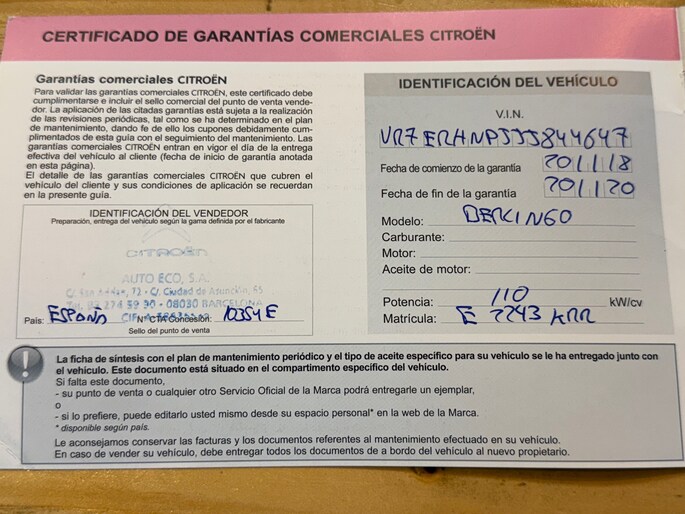 CERTIFICADO DE GARANTÍAS COMERCIALES CITROËN
Garantías comerciales CITROËN
Para validar las garantías comerciales CITROËN, este certificado debe
cumplimentarse e incluir el sello comercial del punto de venta vende-
dor. La aplicación de las citadas garantías está sujeta a la realización
de las revisiones periódicas, tal como se ha determinado en el plan
de mantenimiento, dando fe de ello los cupones debidamente cum-
plimentados de esta guía con el seguimiento del mantenimiento. Las
garantías comerciales CITROËN entran en vigor el día de la entrega
efectiva del vehículo al cliente (fecha de inicio de garantía anotada
en esta página).
El detalle de las garantías comerciales CITROËN que cubren el
vehículo del cliente y sus condiciones de aplicación se recuerdan
en la presente guía.
IDENTIFICACIÓN DEL VENDEDOR
Preparación, entrega del vehículo según la gama definida por el fabricante
CITROËN
AUTO ECO, S.A.
C/ Ciudad de Asunción, 45
08030 BARCELONA
País: ESPAÑA Nº CTA Concesión: 10354E
Sello del punto de venta
IDENTIFICACIÓN DEL VEHÍCULO
V.I.N.
VR7ERHNPJJJ844647
Fecha de comienzo de la garantía 201118
Fecha de fin de la garantía 201120
Modelo: BERLINGO
Carburante:
Motor:
Aceite de motor:
Potencia: 110 kW/cv
Matrícula: E 2243 KRR
La ficha de síntesis con el plan de mantenimiento periódico y el tipo de aceite específico para su vehículo se le ha entregado junto con
el vehículo. Este documento está situado en el compartimento específico del vehículo.
Si falta este documento,
- su punto de venta o cualquier otro Servicio Oficial de la Marca podrá entregarle un ejemplar,
o
- si lo prefiere, puede editarlo usted mismo desde su espacio personal* en la web de la Marca.
* disponible según país.
Le aconsejamos conservar las facturas y los documentos referentes al mantenimiento efectuado en su vehículo.
En caso de vender su vehículo, debe entregar todos los documentos de a bordo del vehículo al nuevo propietario.